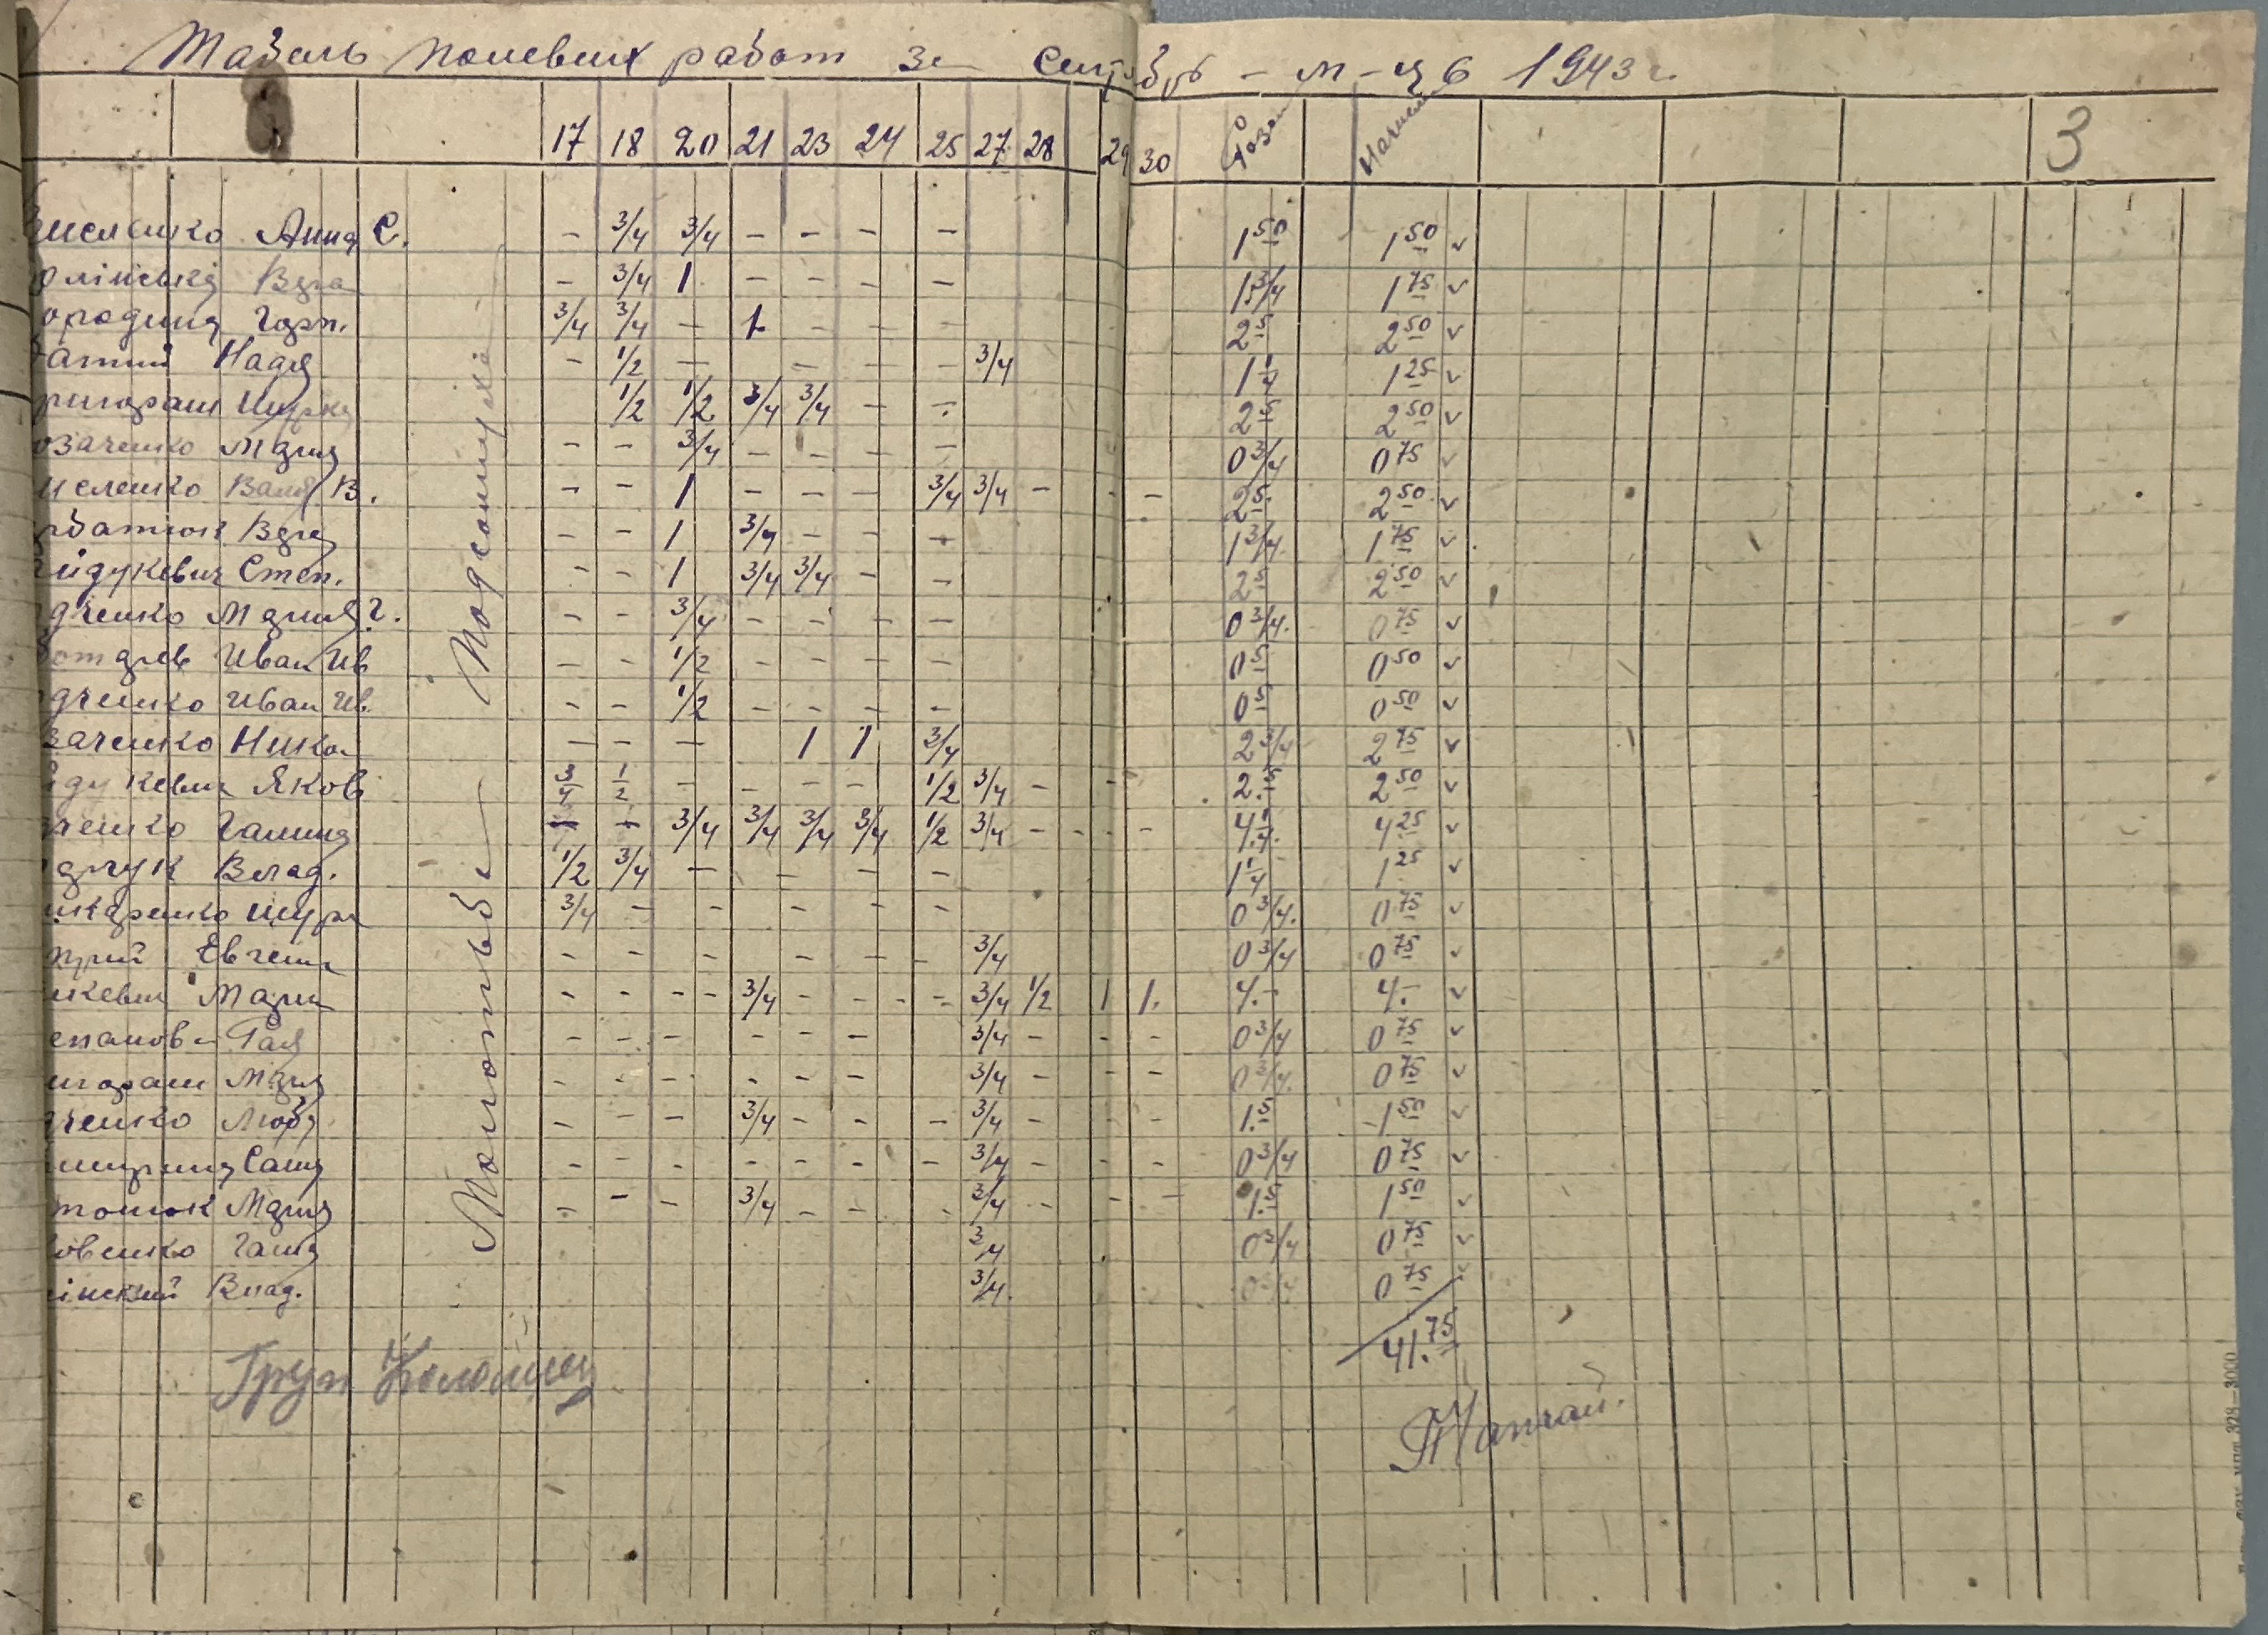 Табель полевых работ за Сентябрь - м-ц 6 1943 г.
3
17 18 20 21 23 24 25 27 28 29 30
Подсолнухі
Молотьба
Анна С. - 3/4 3/4 - - - - 1 50 1 50 v
Вера - 3/4 1 - - - - 1 3/4 1 75 v
Горп. 3/4 3/4 - 1 - - - 2 5 2 50 v
Надя - 1/2 - - - - 3/4 1 1/4 1 25 v
ригораш Шурка 1/2 1/2 3/4 3/4 - - 2 5 2 50 v
озаченко Мария - - 3/4 - - - - 0 3/4 0 75 v
иеленко Ваня В. - - 1 - - - 3/4 3/4 - - - 2 5 2 50 v
рбатюк Вера - - 1 3/4 - - - 1 3/4 1 75 v
йдукевич Степ. - - 1 3/4 3/4 - - 2 5 2 50 v
дченко Мария Г. - - 3/4 - - - - 0 3/4 0 75 v
Иван Ив - - 1/2 - - - - 0 5 0 50 v
дченко Иван Ив. - - 1/2 - - - - 0 5 0 50 v
заченко Нико - - - 1 1 3/4 2 3/4 2 75 v
йдукевич Яков 3/4 1/2 - - - - 1/2 3/4 - - 2.5 2 50 v
ченко Галина 3/4 3/4 3/4 3/4 1/2 3/4 - - - 4.1/4. 4 25 v
Влад. 1/2 3/4 - - - - 1 1/4 1 25 v
шкаренко Шура 3/4 - - - - - 0 3/4. 0 75 v
Евгени - - - - - - - 3/4 0 3/4 0 75 v
ткевич Мария - - - - 3/4 - - - - 3/4 1/2 1 1. 4.- 4.- v
епанова Рая - - - - - - 3/4 - - - 0 3/4 0 75 v
игораш Мария - - - - - - 3/4 - - - 0 3/4. 0 75 v
дченко Люба - - - 3/4 - - - 3/4 - - - 1.5 1 50 v
Саша - - - - - - - 3/4 - - - 0 3/4 0 75 v
тонюк Мария - - - 3/4 - - - 3/4 - - - 1.5 1 50 v
овенко Галя 3/4 0 3/4 0 75 v
інский Влад. 3/4. 0 3/4 0 75 v
41.75
Груп Коломиец